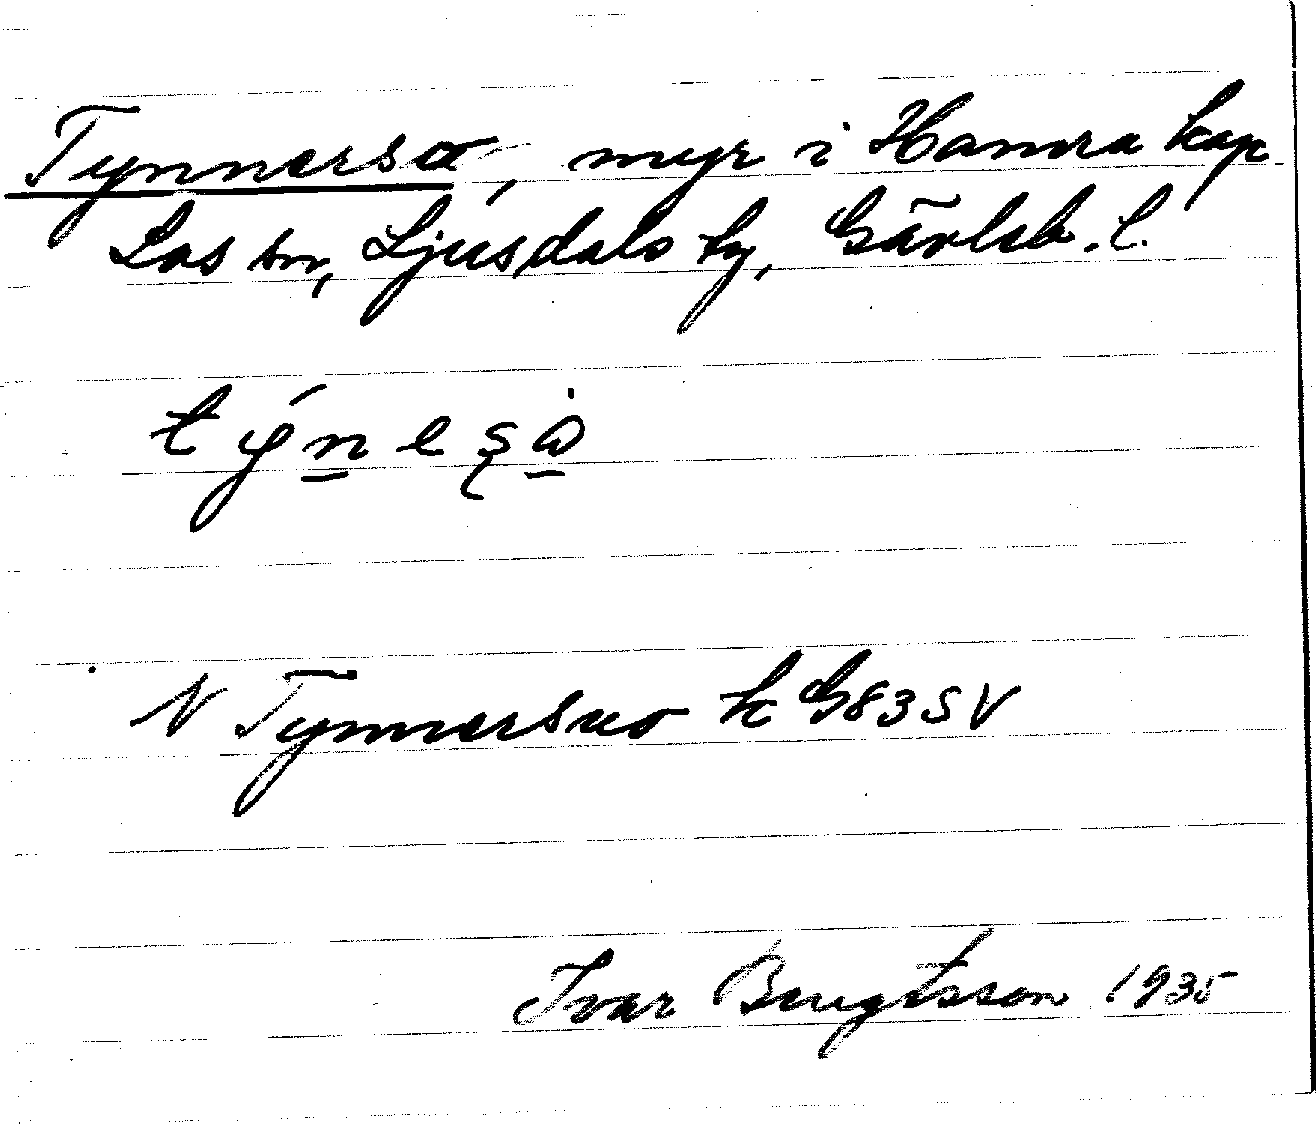 Tynnerso, myr i Hamra kap
Los sn, Ljusdals tg, Gävleb. l.
týnesω
N Tynnersuo k G83SV
Ivar Bengtsson 1935